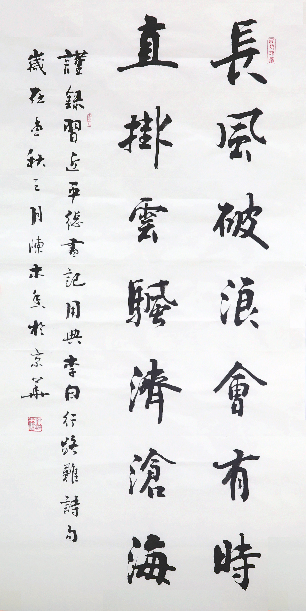 長風破浪會有時
直掛雲颿濟滄海
謹錄習近平總書記用典李白行路難詩句
歲在 秋 月陳 於京華